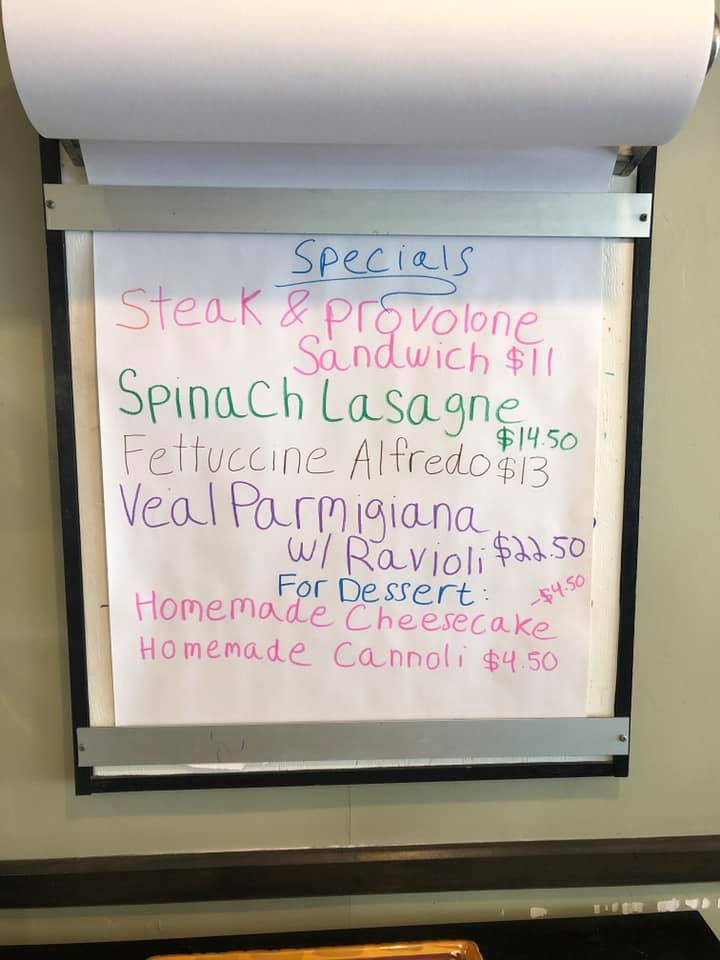 Specials
Steak & Provolone
Sandwich $11
Spinach Lasagne
$14.50
Fettuccine Alfredo $13
Veal Parmigiana
w/ Ravioli $22.50
For Dessert:
Homemade Cheesecake -$4.50
Homemade Cannoli $4.50